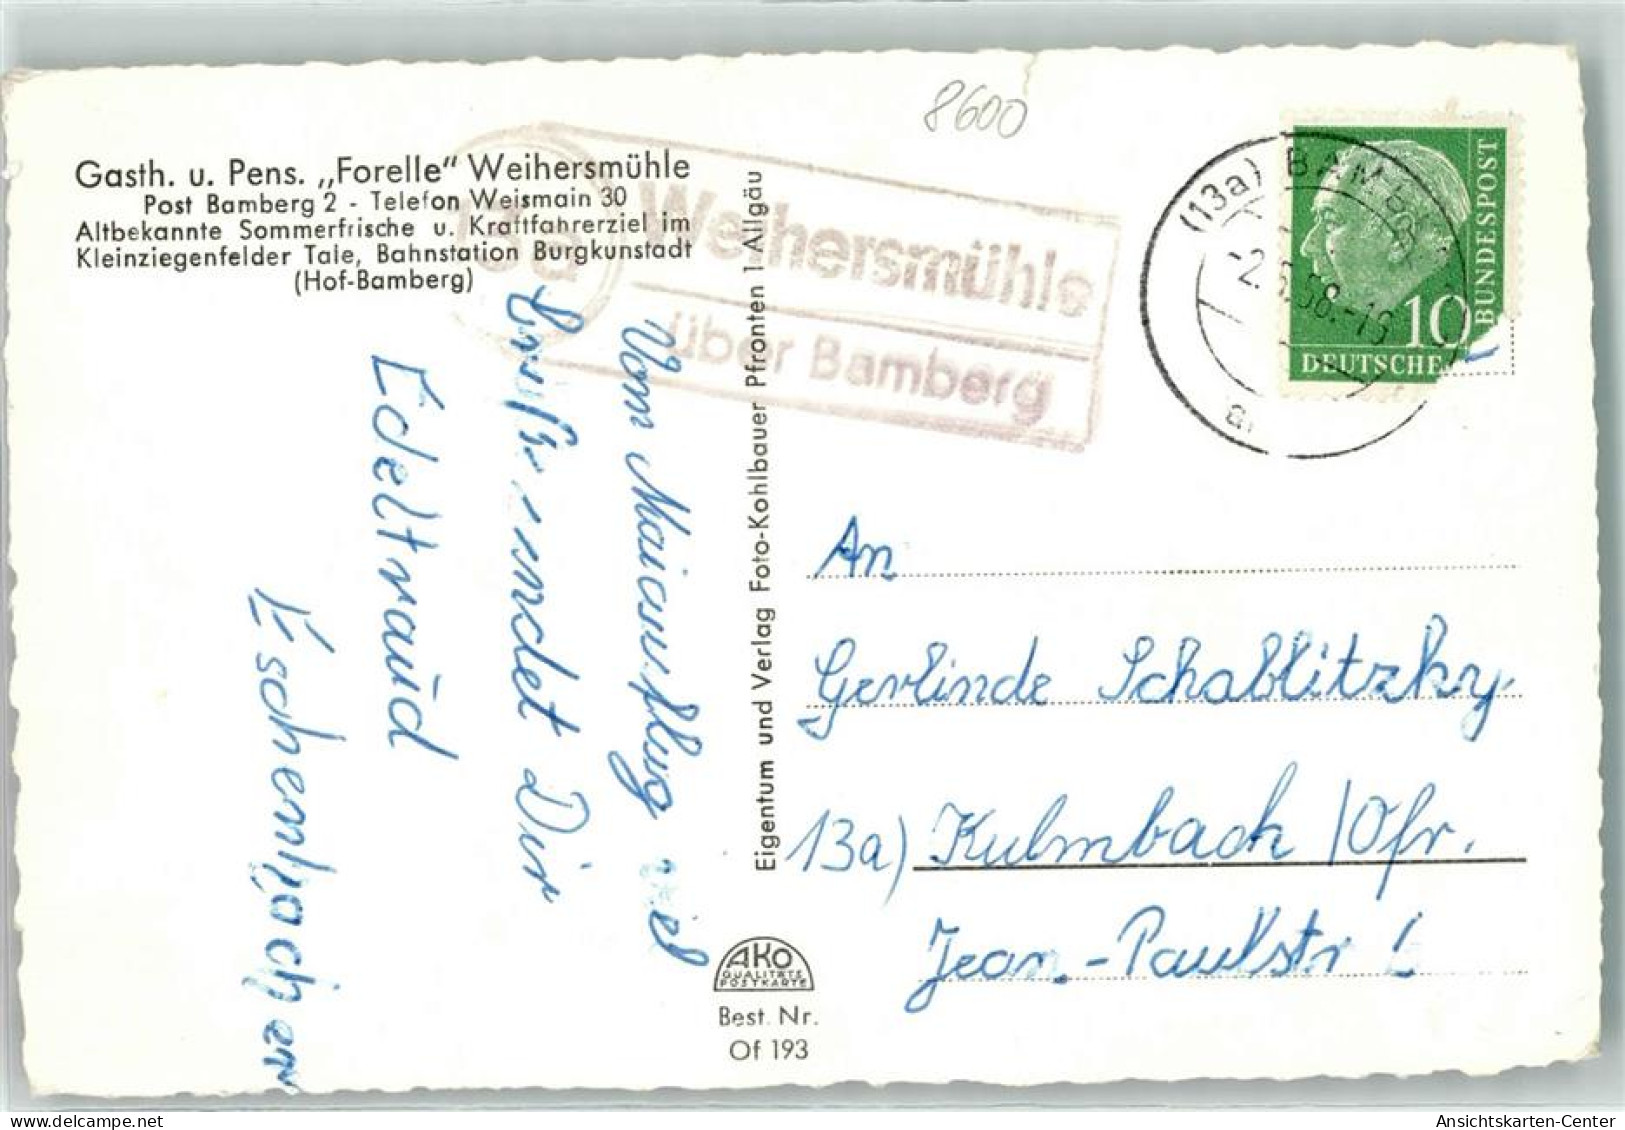 8600
Gasth. u. Pens. „Forelle“ Weihersmühle
Post Bamberg 2 - Telefon Weismain 30
Altbekannte Sommerfrische u. Kraftfahrerziel im
Kleinziegenfelder Tale, Bahnstation Burgkunstadt
(Hof-Bamberg)
13a
Weihersmühle
über Bamberg
(13a) BAMBERG
-2.5.58.-19
a
BUNDESPOST
10
DEUTSCHE
Vom Maiausflug viel
Grüße sendet Dir
Edeltraud
Eschenbacher
Eigentum und Verlag Foto-Kohlbauer Pfronten 1 Allgäu
An
Gerlinde Schablitzky
13a) Kulmbach /Ofr.
Jean-Paulstr
AKO
QUALITÄTS
POSTKARTE
Best. Nr.
Of 193
Ansichtskarten-Center